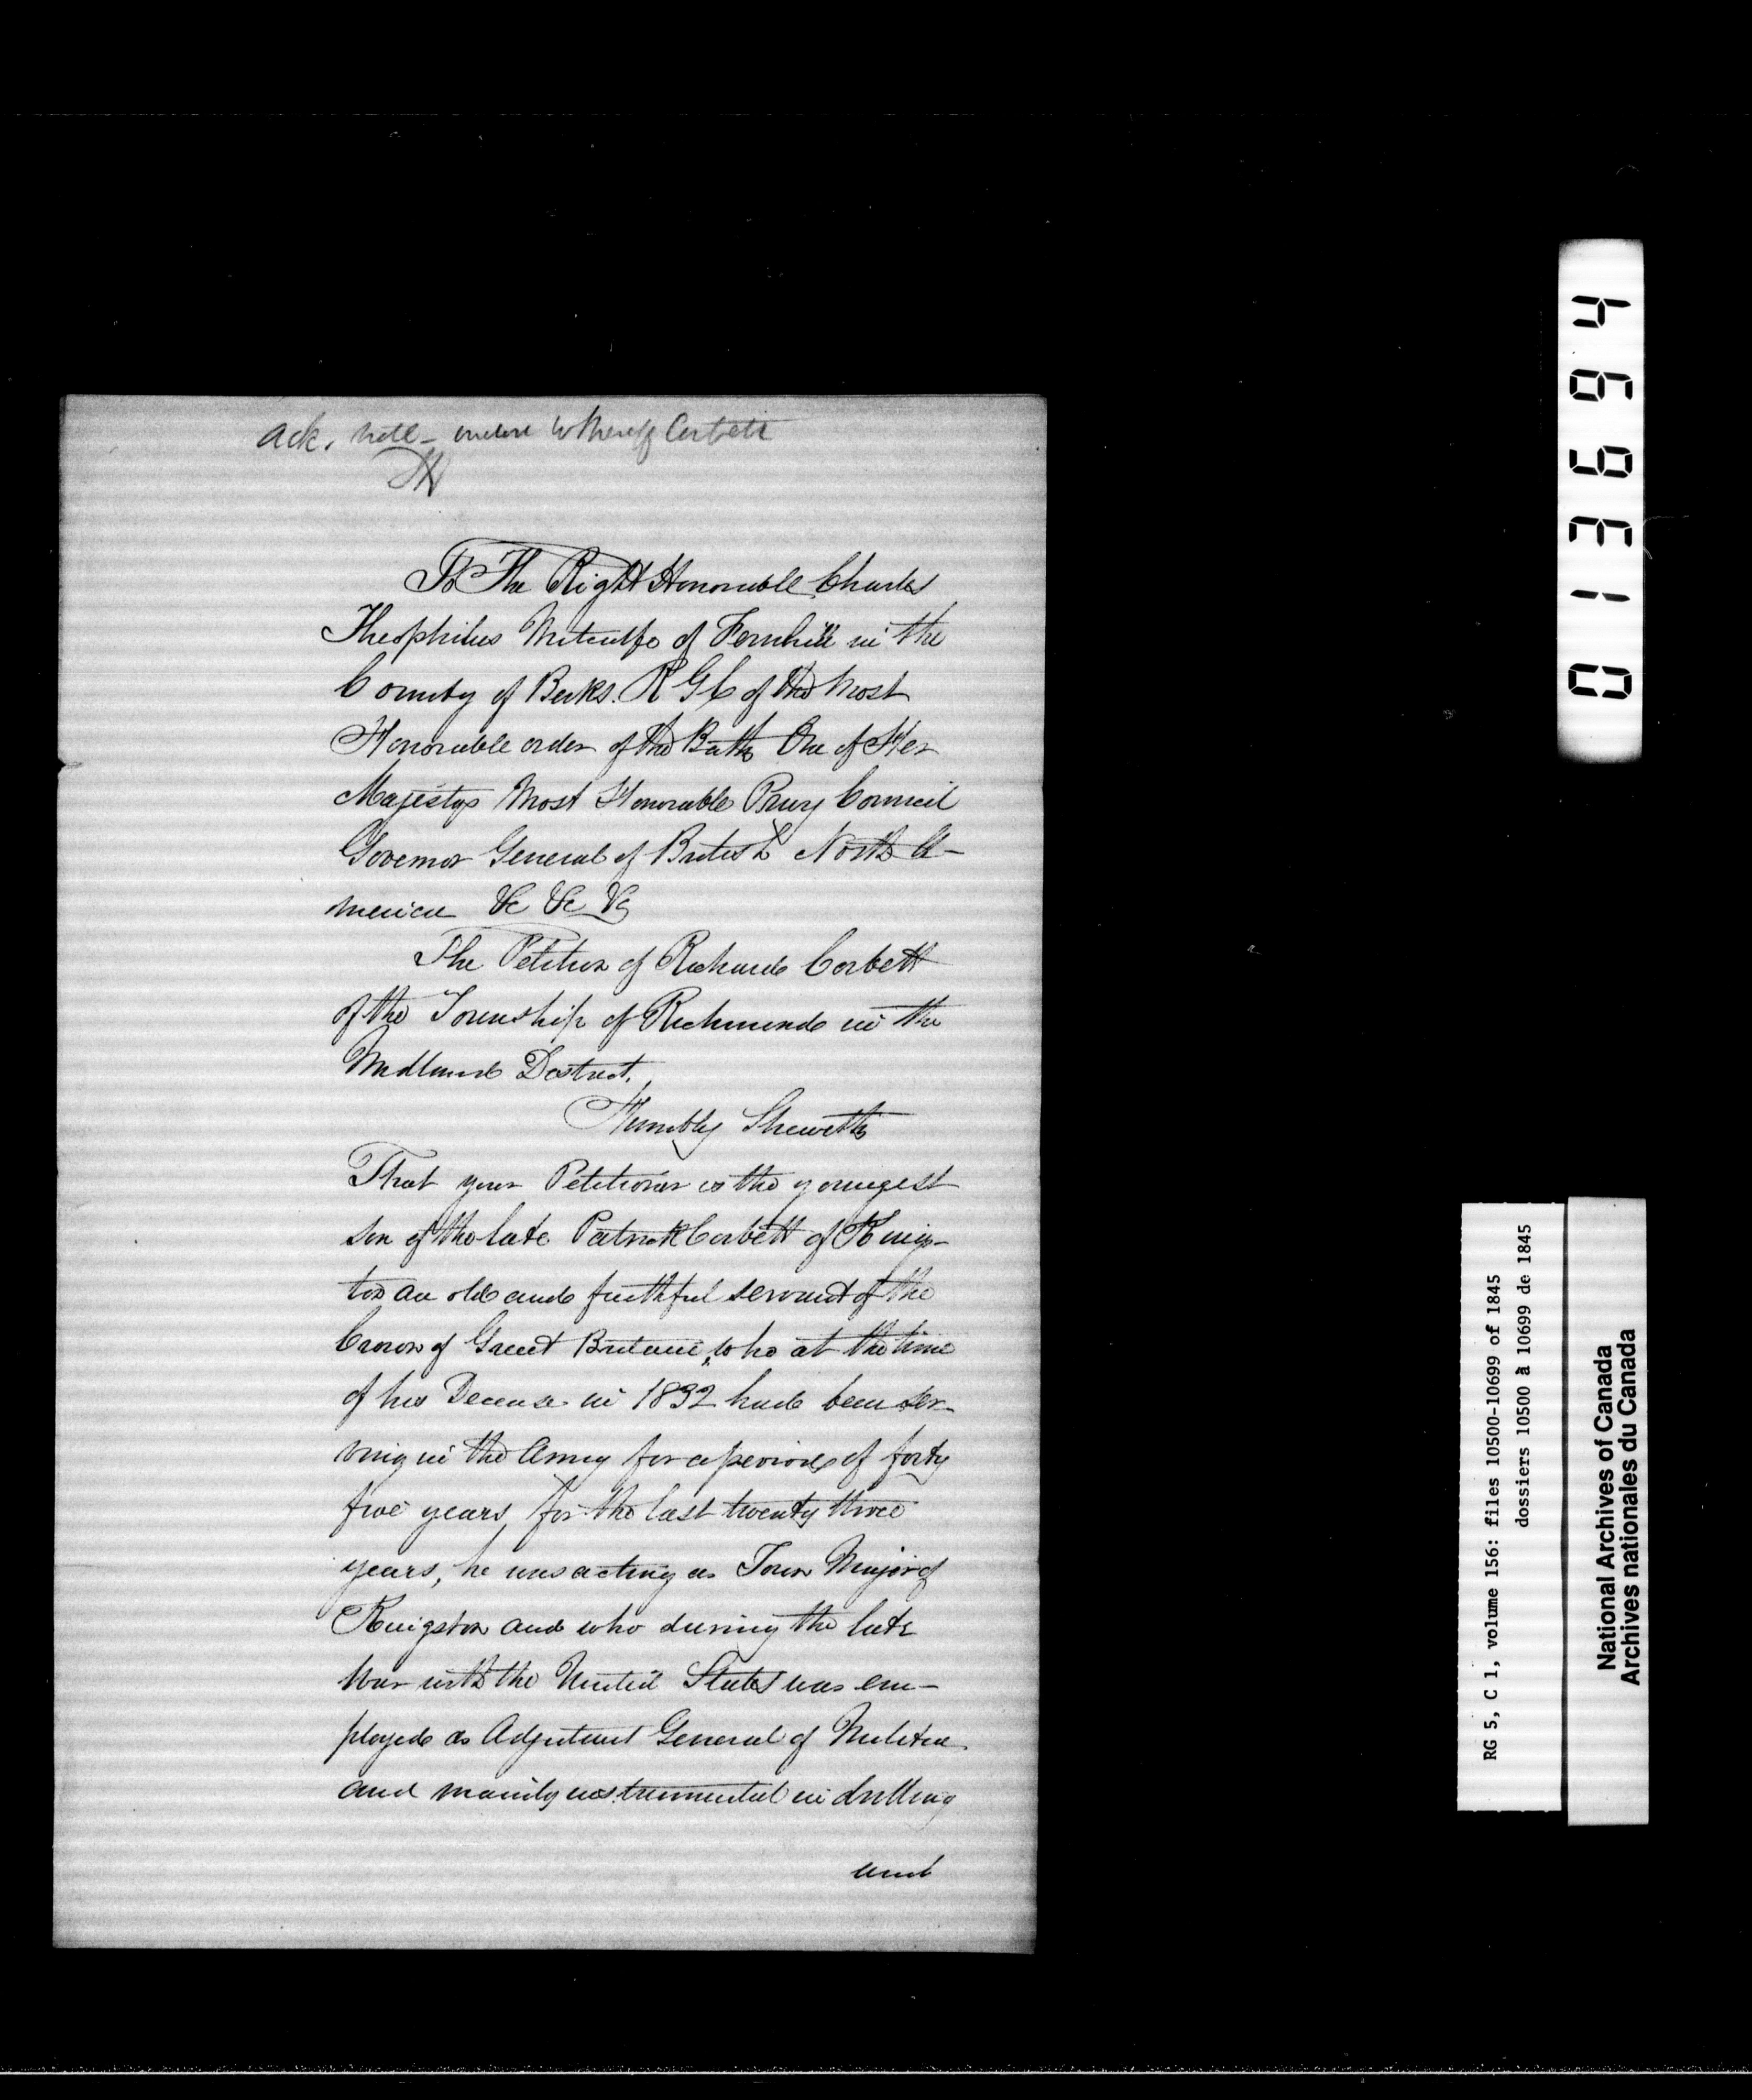 ack. note - enclose to Sheriff Corbett
To The Right Honorable Charles
Theophilus Metcalfe of Fernhill in the
County of Berks. K G C of the Most
Honorable order of the Bath One of Her
Majestys Most Honorable Privy Council
Governor General of British North A-
merica &c &c &c
The Petition of Richard Corbett
of the Township of Richmond in the
Midland District,
Humbly Sheweth
That your Petitioner is the youngest
son of the late Patrick Corbett of Kings-
ton an old and faithful servant of the
Crown of Great Britain, who at the time
of his Decease in 1832 had been ser-
ving in the Army for a period of forty
five years, for the last twenty three
years, he was acting as Town Major of
Kingston and who during the late
War with the United States was em-
ployed as Adjutant General of Militia
and mainly instrumental in drilling
and
013694
RG 5, C 1, volume 156: files 10500-10699 of 1845
dossiers 10500 à 10699 de 1845
National Archives of Canada
Archives nationales du Canada